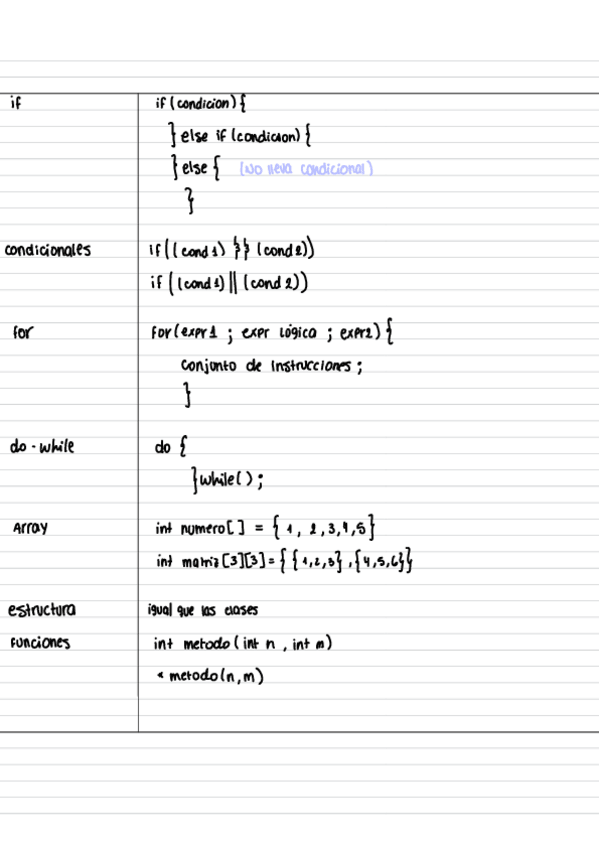 if if (condicion) {
} else if (condicion) {
} else { (No lleva condicional)
}
condicionales if ((cond 1) }} (cond 2))
if ((cond 1) || (cond 2))
for for (expr1 ; expr lógica ; expr2) {
conjunto de instrucciones ;
}
do - while do {
} while ( ) ;
Array int numero [ ] = { 1, 2, 3, 4, 5 }
int matriz [3][3] = { { 1, 2, 3 } , { 4, 5, 6 } }
estructura igual que las clases
Funciones int metodo ( int n , int m )
* metodo (n, m)